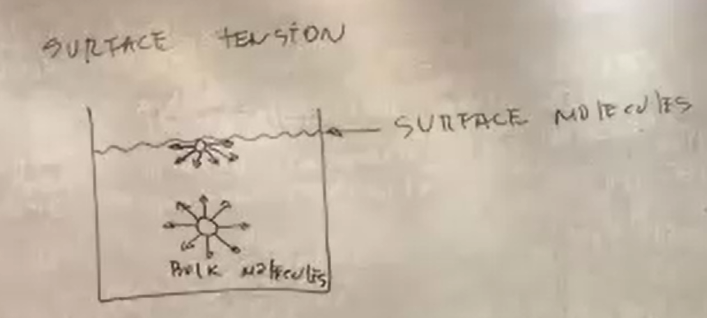 SURFACE TENSION
SURFACE MOLECULES
BULK MOLECULES